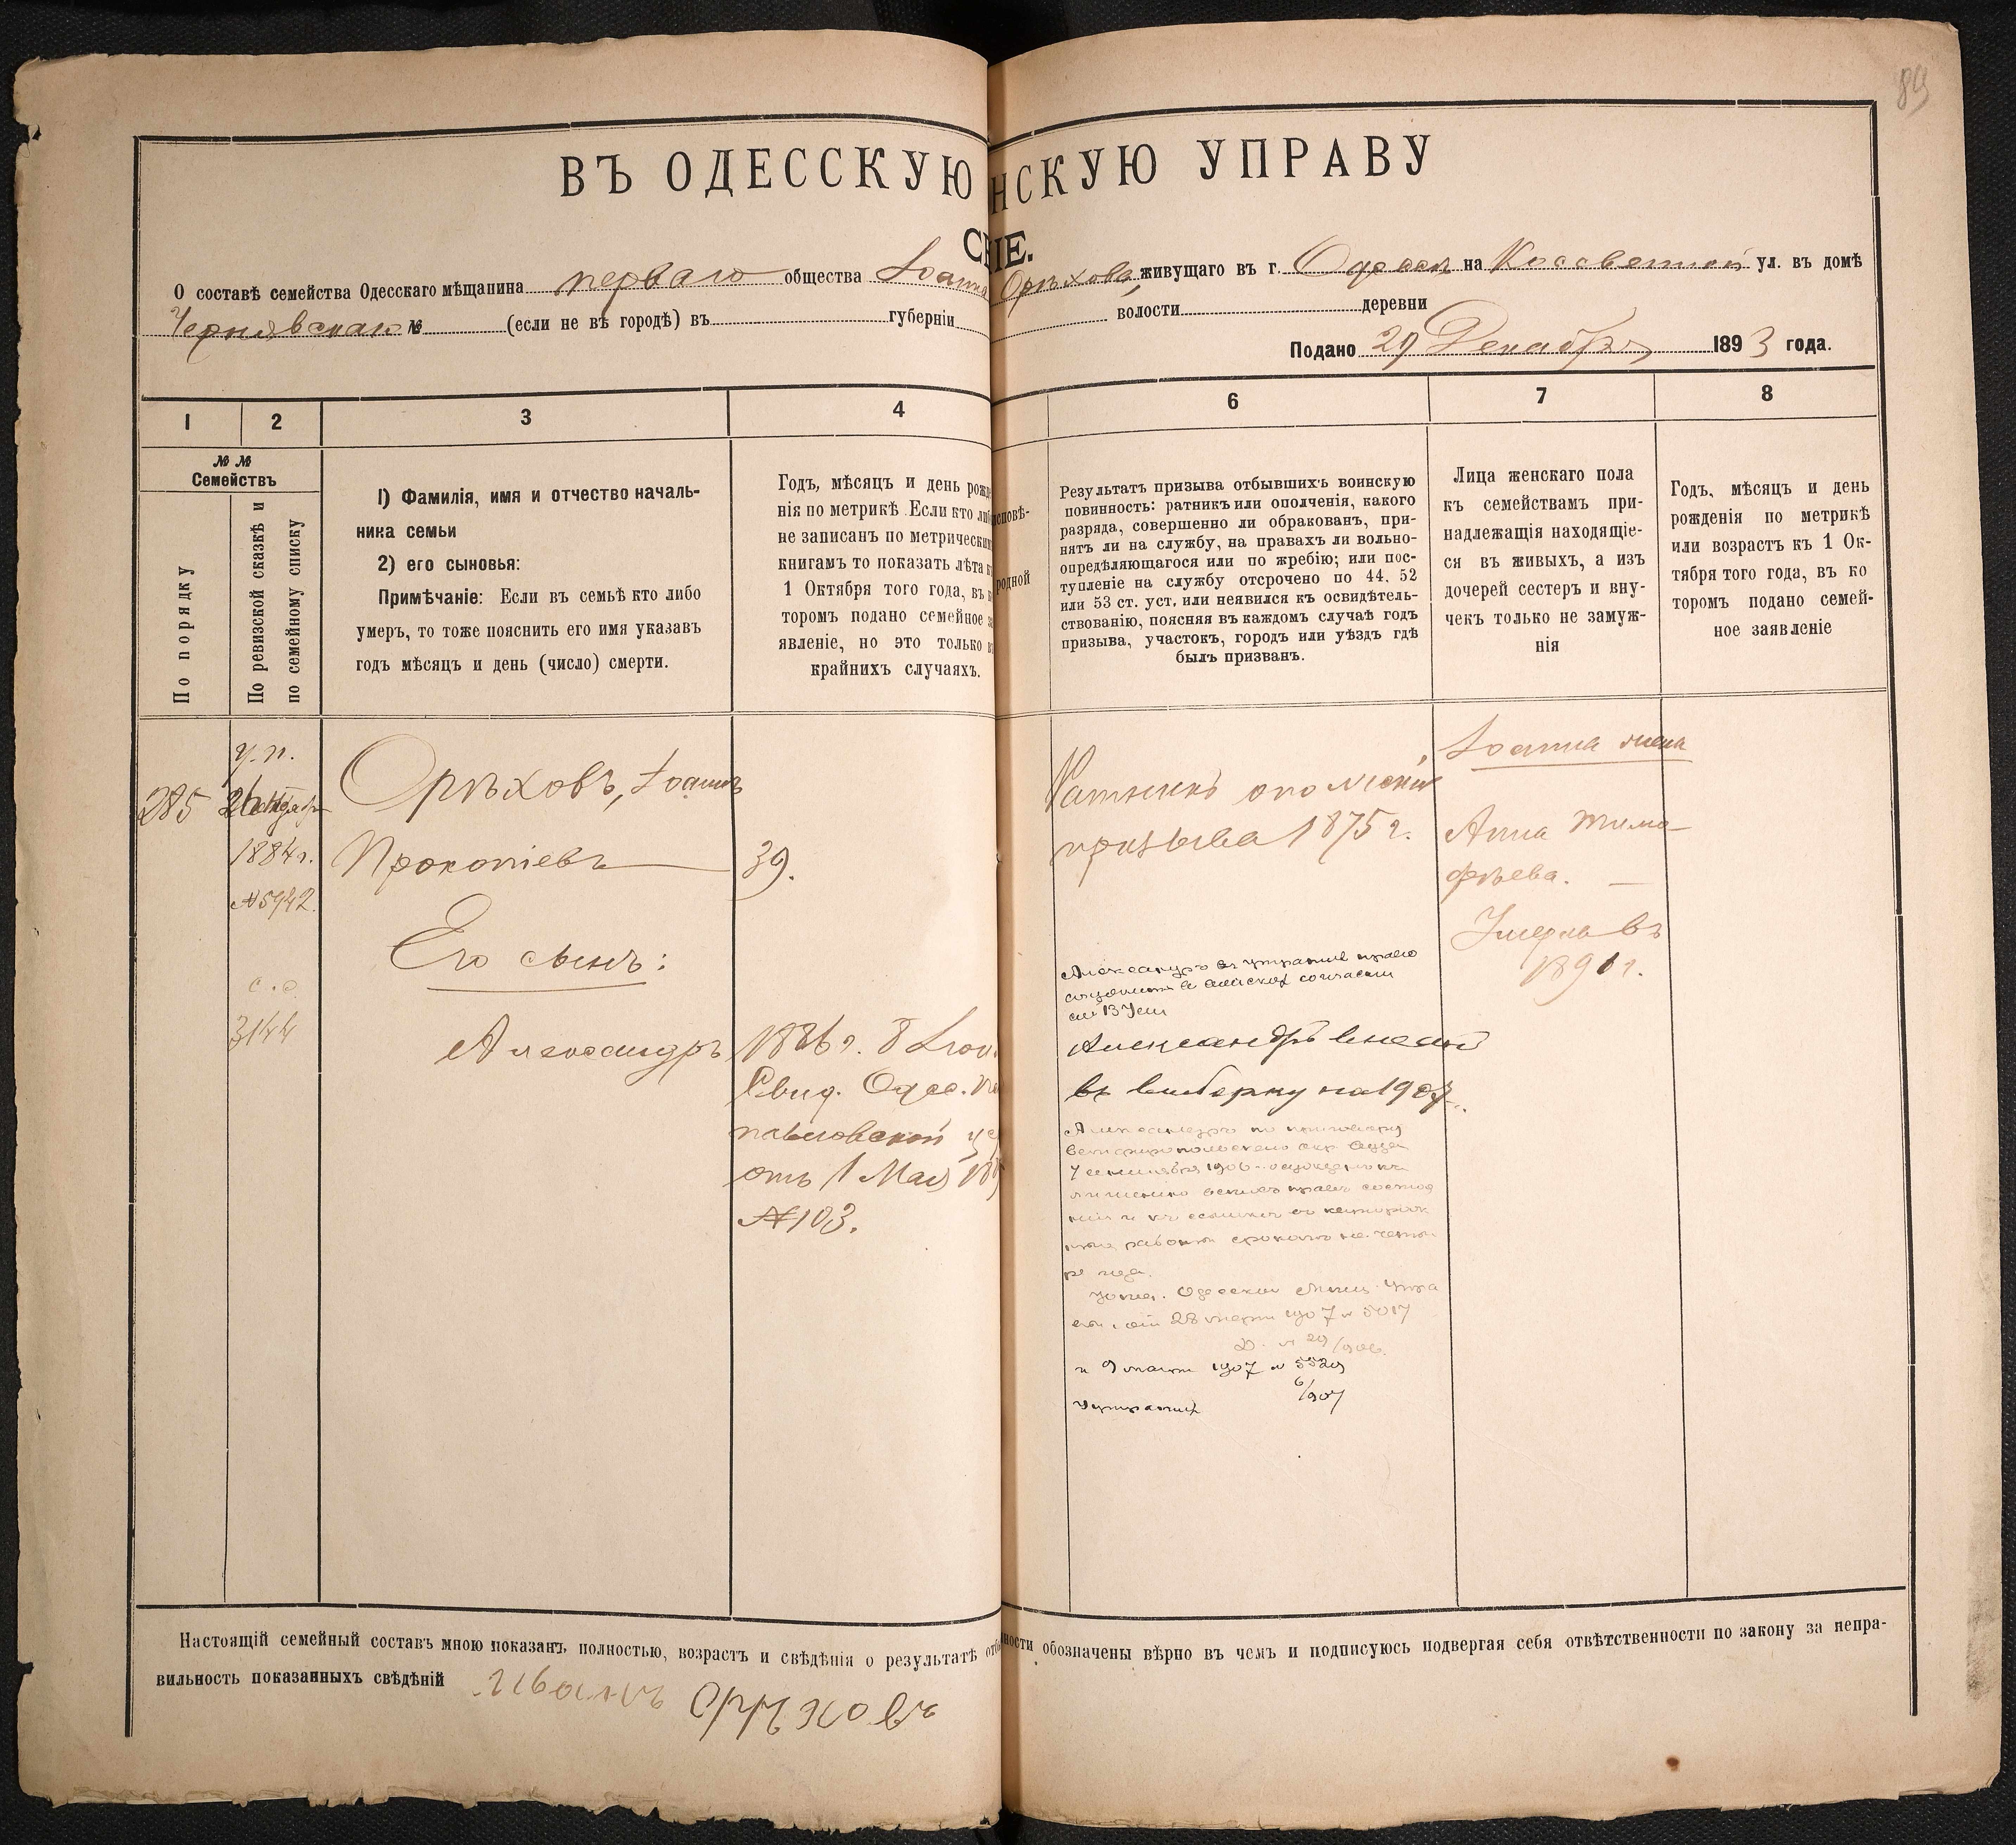 89
ВЪ ОДЕССКУЮ НСКУЮ УПРАВУ
СНІЕ.
О составѣ семейства Одесскаго мѣщанина перваго общества Іоанна Орѣхова, живущаго въ г. Одессѣ на Коссвенной ул. въ домѣ
Чернявскаго № (если не въ городѣ) въ губерніи волости деревни
Подано 29 Декабря 1893 года.
1 2 3 4 6 7 8
№ №
Семействъ
По порядку
По ревизской сказкѣ и
по семейному списку
1) Фамилія, имя и отчество началь-
ника семьи
2) его сыновья:
Примѣчаніе: Если въ семьѣ кто либо
умеръ, то тоже пояснить его имя указавъ
годъ мѣсяцъ и день (число) смерти.
Годъ, мѣсяцъ и день рожде
нія по метрикѣ. Если кто либ
не записанъ по метрическим
книгамъ то показать лѣта к
1 Октября того года, въ к
торомъ подано семейное з
явленіе, но это только в
крайнихъ случаяхъ.
исповѣ-
родной
Результатъ призыва отбывшихъ воинскую
повинность: ратникъ или ополченія, какого
разряда, совершенно ли обракованъ, при-
нятъ ли на службу, на правахъ ли вольно-
опредѣляющагося или по жребію; или пос-
тупленіе на службу отсрочено по 44. 52
или 53 ст. уст. или неявился къ освидѣтель-
ствованію, поясняя въ каждомъ случаѣ годъ
призыва, участокъ, городъ или уѣздъ гдѣ
былъ призванъ.
Лица женскаго пола
къ семействамъ при-
надлежащія находящіе-
ся въ живыхъ, а изъ
дочерей сестеръ и вну-
чекъ только не замуж-
нія
Годъ, мѣсяцъ и день
рожденія по метрикѣ
или возрастъ къ 1 Ок-
тября того года, въ ко
торомъ подано семей-
ное заявленіе
285
у.п.
1884г.
№5942.
с.о
3144
Орѣховъ, Іоаннъ
Прокопіевъ
39.
Его сынъ:
Александръ
1886 г. 8
Свид. Одес.
павловской
отъ 1 Мая
№103.
Ратникъ
призыва 1875 г.
Александръ
Александръ внесенъ
въ выборку на 1907
Александръ по приговору
окр суда
7 сентября 1906
лишенію всѣхъ правъ состоя
нія и къ ссылкѣ въ каторж
ныя работы срокомъ на четы
ре года.
Одесской Мѣщ. Упра
28 1907 № 5017
и 9 1907 № 5529
6/907
Іоанна жена
Анна Тимо-
фѣева.
Умерла въ
1891 г.
Настоящій семейный составъ мною показанъ полностью, возрастъ и свѣдѣнія о результатѣ отб ности обозначены вѣрно въ чемъ и подписуюсь подвергая себя отвѣтственности по закону за непра-
вильность показанныхъ свѣдѣній Иванъ Орѣховъ